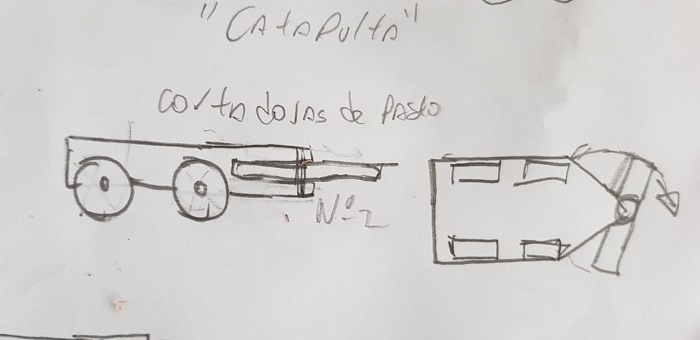 "CAtAPultA"
CoRtADoRAs de PASto
Nº2